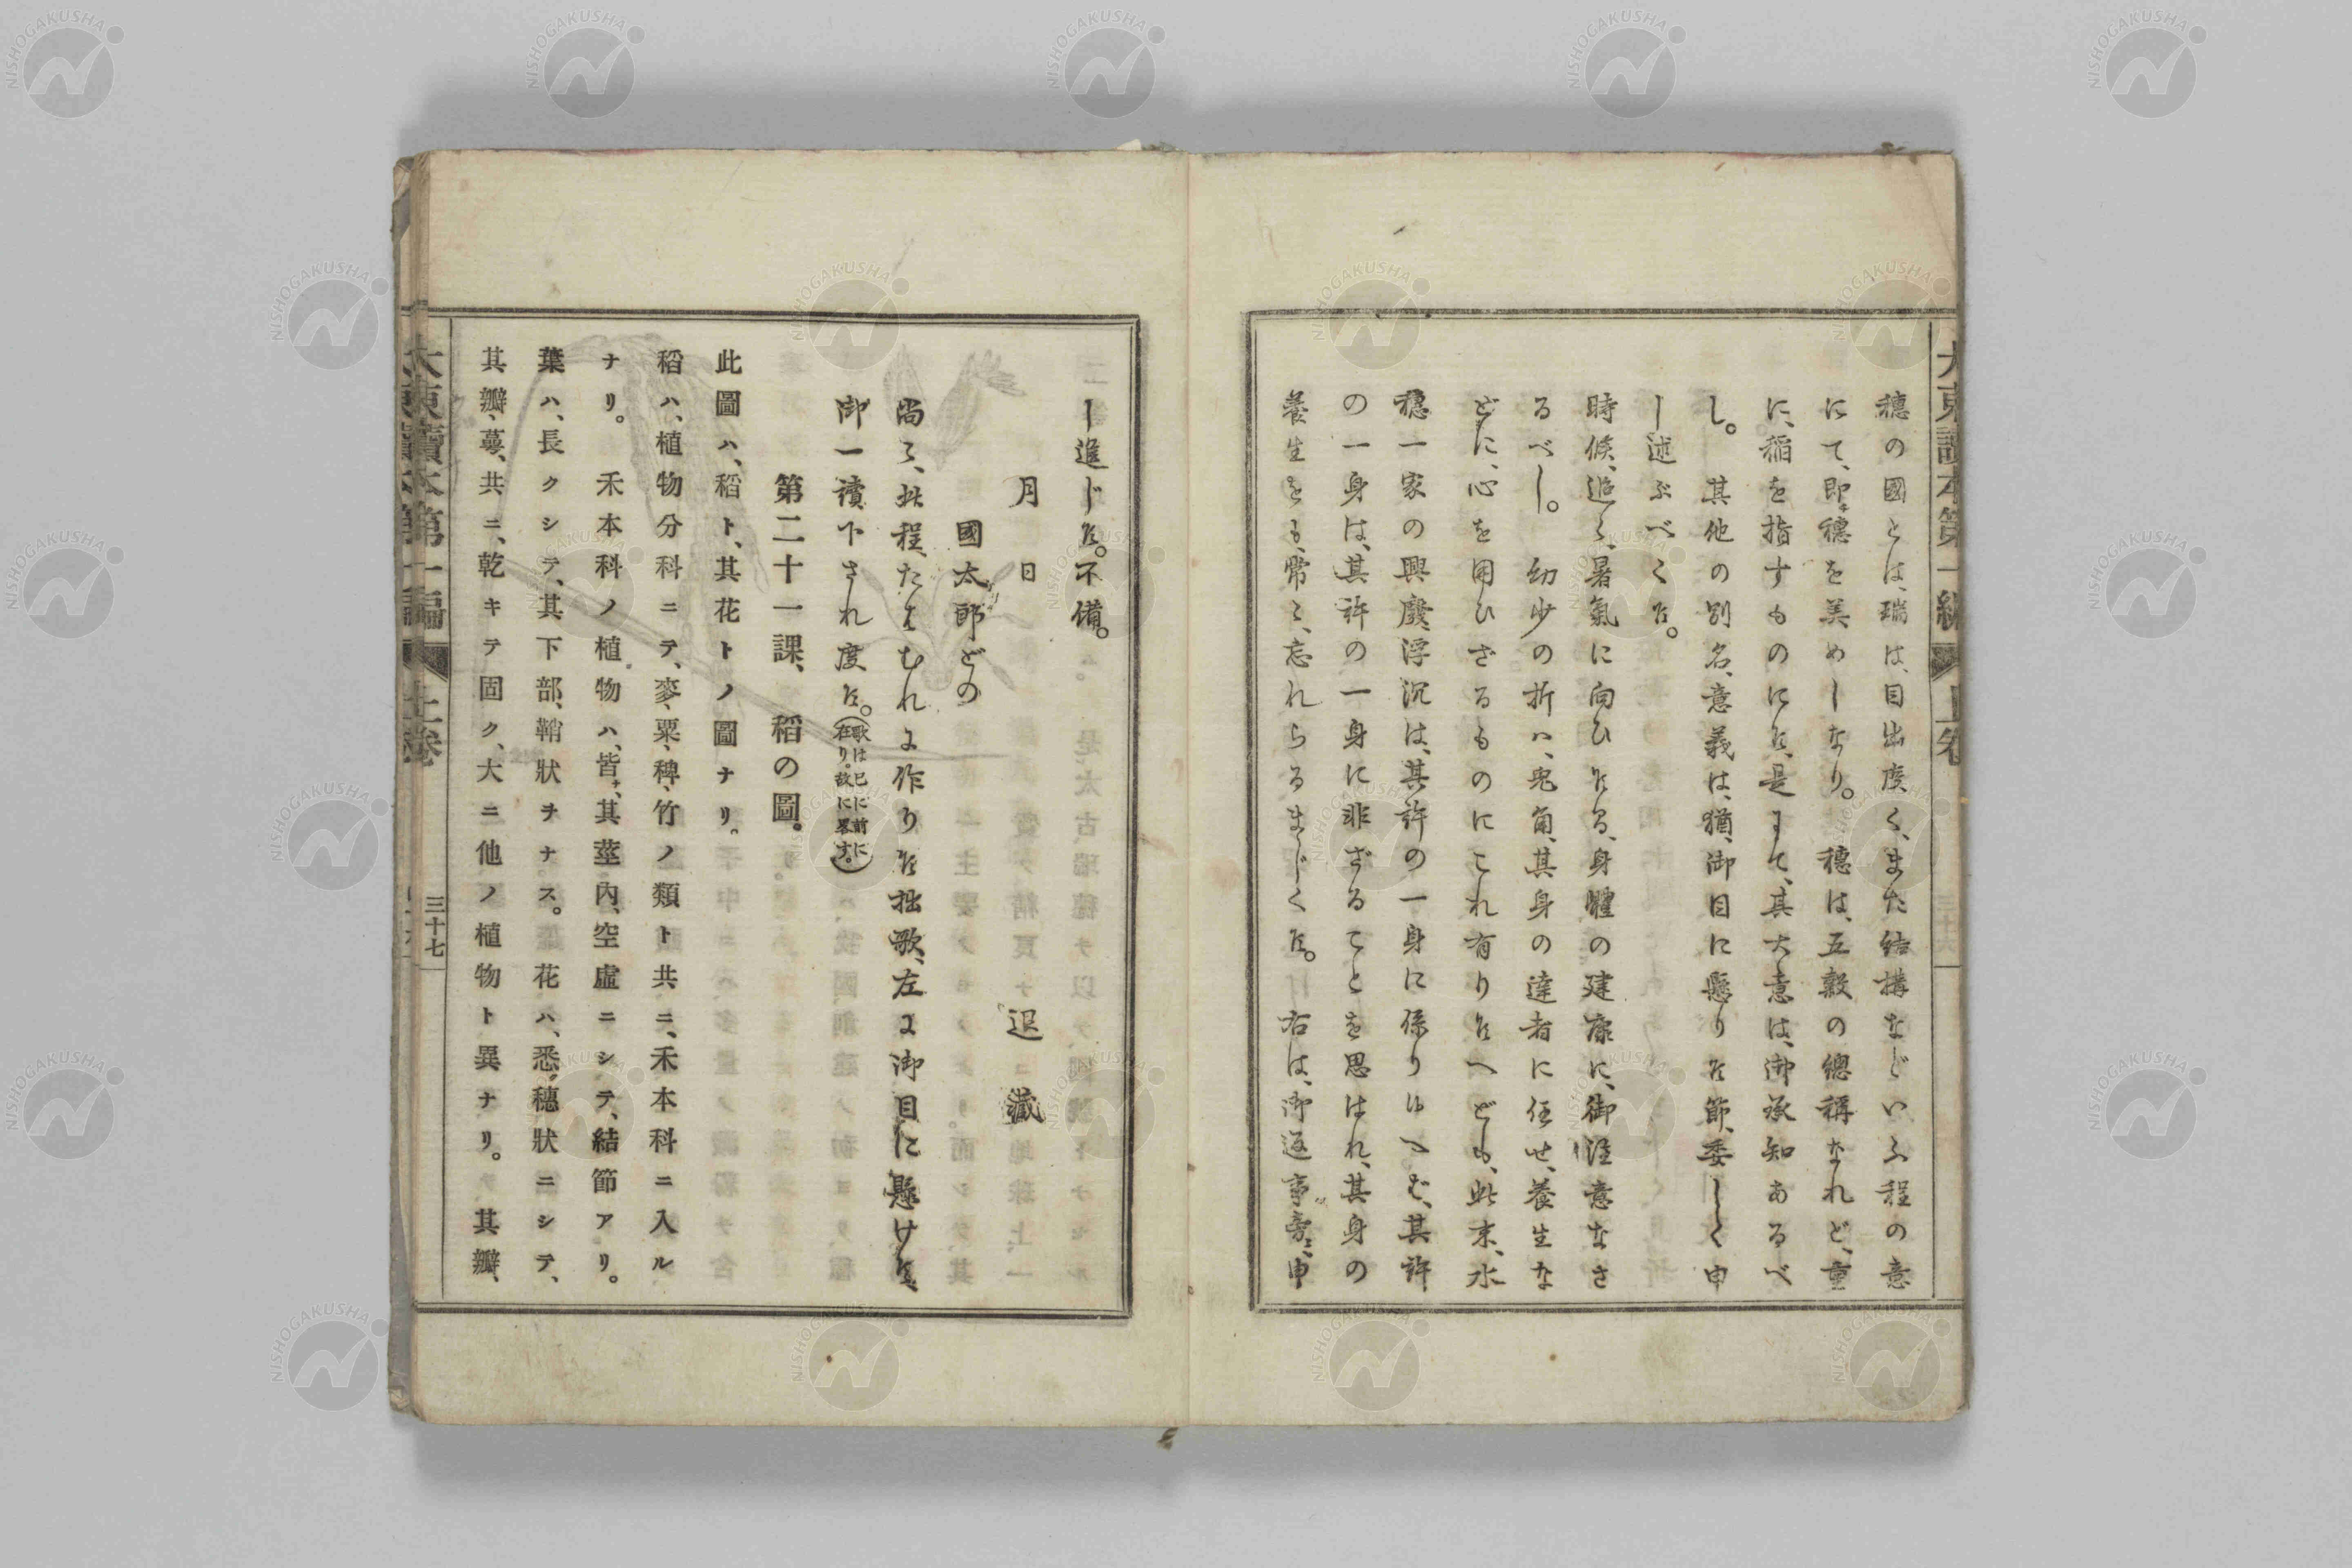 穗の國とは、瑞は、目出度く、また結構などいふ程の意
にて、即穗を美めしなり。穗は、五穀の總稱なれど、重
に、稻を指すものに候、是にて、其大意は、御承知あるべ
し。其他の別名、意義は、猶、御目に懸り候節、委しく申
し述ぶべく候。
時候、追々、暑氣に向ひ候る、身體の建康に、御注意なさ
るべし。幼少の折ハ、兎角、其身の達者に任せ、養生な
どに、心を用ひざるものにこれ有り候へども、此末、水
穗一家の興廢、浮沉は、其許の一身に係りゆへば、其許
の一身は、其許の一身に非ざることを思はれ、其身の
養生をも、常々、忘れらるまじく候。右は、御返事旁、申
大東讀本第一編 上卷 三十六
し進じ候。不備。
月 日 退藏
國太郎どの
尚々、此程、たはむれに作り候拙歌、左に御目に懸け候、
御一讀下され度候。(歌は已に前に在り。故に畧す。)
第二十一課、稻の圖。
此圖ハ、稻ト、其花トノ圖ナリ。
稻ハ、植物分科ニテ、麥、粟、稗、竹ノ類ト共ニ、禾本科ニ入ル
ナリ。禾本科ノ植物ハ、皆、其莖內、空虛ニシテ、結節アリ。
葉ハ、長クシテ、其下部、鞘狀ヲナス。花ハ、悉、穗狀ニシテ、
其瓣、萼、共ニ、乾キテ固ク、大ニ他ノ植物ト異ナリ。其瓣、
大東讀本第一編 上卷 三十七
NISHOGAKUSHA